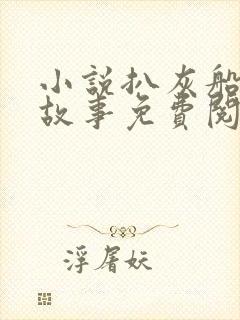 小說扒灰船
故事免費閱
浮屠妖